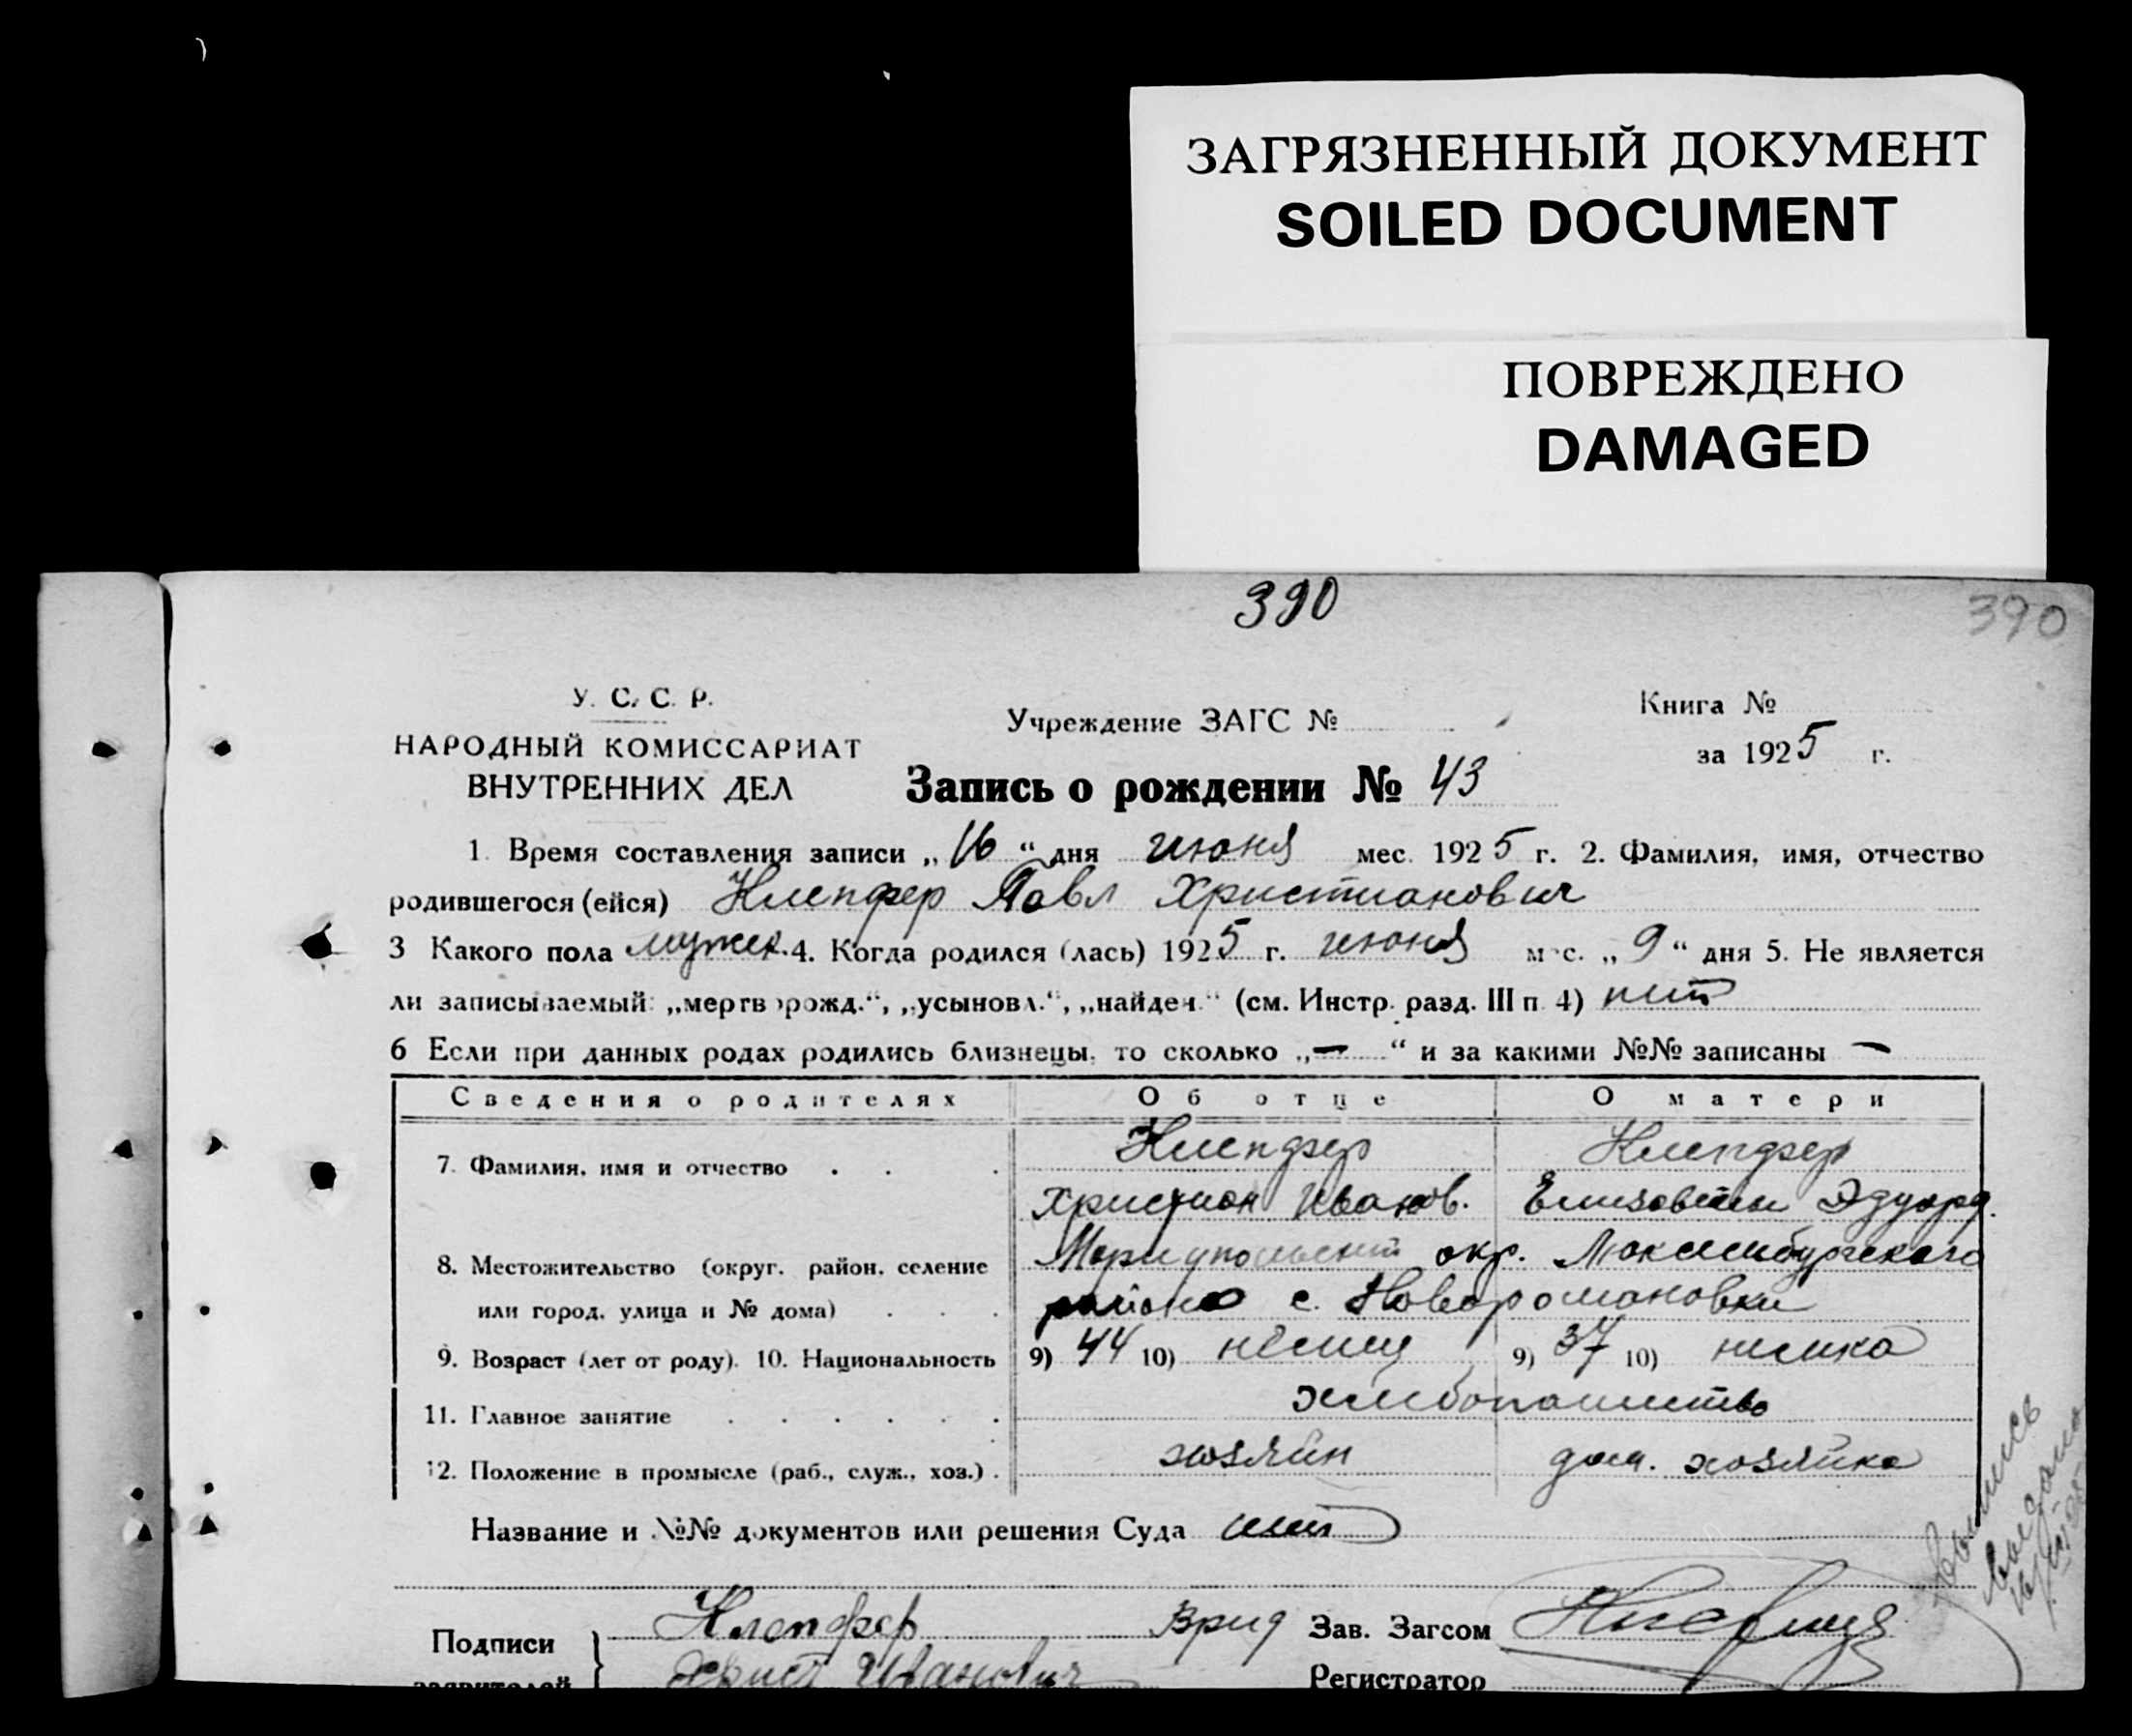 ЗАГРЯЗНЕННЫЙ ДОКУМЕНТ
SOILED DOCUMENT
ПОВРЕЖДЕНО
DAMAGED
390
390
У. С. С. Р.
НАРОДНЫЙ КОМИССАРИАТ
ВНУТРЕННИХ ДЕЛ
Учреждение ЗАГС №
Книга №
за 1925 г.
Запись о рождении № 43
1. Время составления записи „16“ дня июня мес. 1925 г. 2. Фамилия, имя, отчество
родившегося (ейся) Клепфер Павл Христианович
3 Какого пола мужск. 4. Когда родился (лась) 1925 г. июня мес. „9“ дня 5. Не является
ли записываемый: „мертворожд.“, „усыновл.“, „найден.“ (см. Инстр. разд. III п. 4) нет
6 Если при данных родах родились близнецы, то сколько „—“ и за какими №№ записаны —
Сведения о родителях Об отце О матери
7. Фамилия, имя и отчество Клепфер Клепфер
Христиан Иванов. Елизавета Эдуард.
8. Местожительство (округ, район, селение Мариупольский окр. Люксембургского
или город, улица и № дома) района с. Новоромановки
9. Возраст (лет от роду). 10. Национальность 9) 44 10) немец 9) 37 10) немка
11. Главное занятие хлебопашество
12. Положение в промысле (раб., служ., хоз.) хозяин дом. хозяйка
Название и №№ документов или решения Суда нет
Подписи Клепфер Врид Зав. Загсом
заявителей Христ Иванович Регистратор